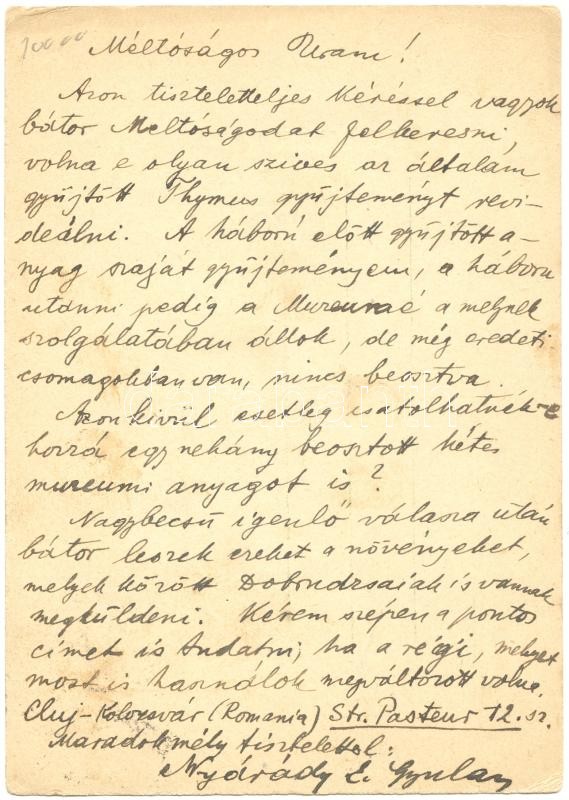 10000
Méltóságos Uram!
Azon tiszteletteljes kéréssel vagyok
bátor Méltóságodat felkeresni,
volna e olyan szives az általam
gyűjtött Thymus gyűjteményt revi-
deálni. A háború előtt gyűjtött a-
nyag saját gyűjteményem, a háboru
utánni pedig a Muzeumé a melynek
szolgálatában állok, de még eredeti
csomagokban van, nincs beosztva.
Azonkivül esetleg csatolhatnék-e
hozzá egy nehány beosztott kétes
muzeumi anyagot is?
Nagybecsű igenlő válasza után
bátor leszek ezeket a növényeket,
melyek között Dobrudzsaiak is vannak
megküldeni. Kérem szépen a pontos
címet is tudatni, ha a régi, melyet
most is használok megváltozott volna.
Cluj-Kolozsvár (Romania) Str. Pasteur 12. sz.
Maradok mély tisztelettel:
Nyárády E. Gyula